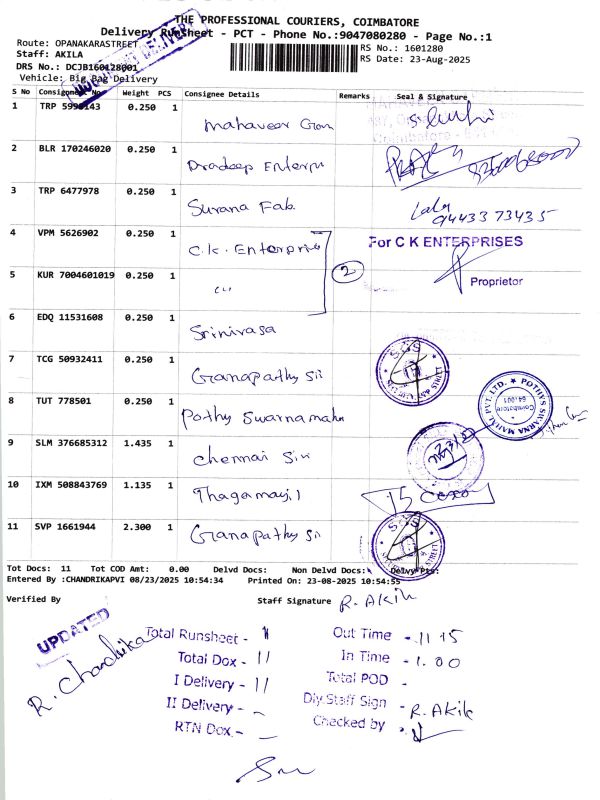 THE PROFESSIONAL COURIERS, COIMBATORE
Delivery Runsheet - PCT - Phone No.:9047080280 - Page No.:1
Route: OPANAKARASTREET
RS No.: 1601280
Staff: AKILA
RS Date: 23-Aug-2025
DRS No.: DCJB160128001
Vehicle: Big Bag Delivery
DELIVERY
S No Consignment No Weight PCS Consignee Details Remarks Seal & Signature
1 TRP 5998143 0.250 1 Mahaveer
2 BLR 170246020 0.250 1 Pradeep Enterpri
3 TRP 6477978 0.250 1 Surana Fab. Lala 94433 73435
4 VPM 5626902 0.250 1 C.K. Enterprise For C K ENTERPRISES
2
5 KUR 7004601019 0.250 1 Proprietor
6 EDQ 11531608 0.250 1 Srinivasa
7 TCG 50932411 0.250 1 Ganapathy Sil
SGS
8 TUT 778501 0.250 1 Pothy Swarnamaha
POTHYS SWARNA MAHAL PVT. LTD. Coimbatore 641001
9 SLM 376685312 1.435 1 Chennai Silk
10 IXM 508843769 1.135 1 Thagamayil
11 SVP 1661944 2.300 1 Ganapathy Sil
SGS
Tot Docs: 11 Tot COD Amt: 0.00 Delvd Docs: Non Delvd Docs: Delvy Pts:
Entered By :CHANDRIKAPVI 08/23/2025 10:54:34 Printed On: 23-08-2025 10:54:55
Verified By Staff Signature R. Akila
UPDATED
R. Chandrika
Total Runsheet - 1 Out Time - 11 15
Total Dox - 11 In Time - 1.00
I Delivery - 11 Total POD -
II Delivery - – Dly.Staff Sign - R. Akila
RTN Dox - – Checked by -